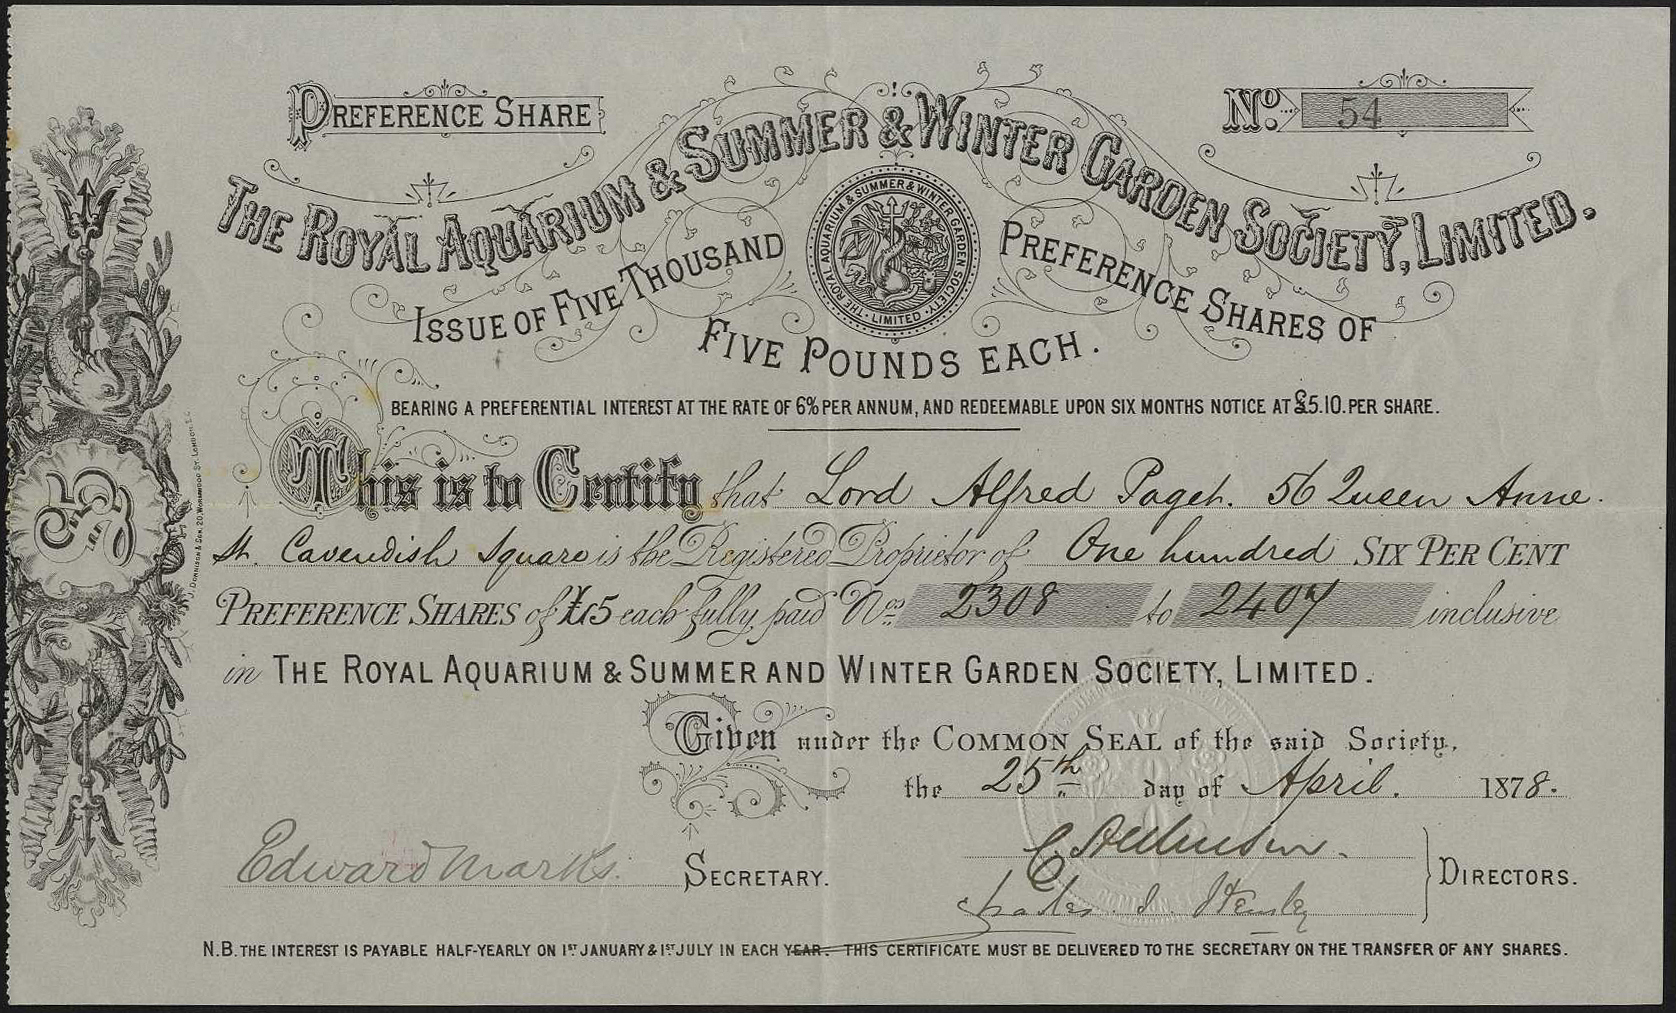 PREFERENCE SHARE
No. 54
THE ROYAL AQUARIUM & SUMMER & WINTER GARDEN SOCIETY, LIMITED.
THE ROYAL AQUARIUM & SUMMER & WINTER GARDEN SOCIETY, · LIMITED ·
ISSUE OF FIVE THOUSAND PREFERENCE SHARES OF
FIVE POUNDS EACH.
BEARING A PREFERENTIAL INTEREST AT THE RATE OF 6% PER ANNUM, AND REDEEMABLE UPON SIX MONTHS NOTICE AT £5.10. PER SHARE.
This is to Certify that Lord Alfred Paget. 56 Queen Anne.
St. Cavendish Square is the Registered Proprietor of One hundred SIX PER CENT
PREFERENCE SHARES of £5 each fully paid Nos. 2308 to 2407 inclusive
in THE ROYAL AQUARIUM & SUMMER AND WINTER GARDEN SOCIETY, LIMITED.
Given under the COMMON SEAL of the said Society,
the 25th day of April. 1878.
Edward Marks. SECRETARY.
DIRECTORS.
N.B. THE INTEREST IS PAYABLE HALF-YEARLY ON 1ST JANUARY & 1ST JULY IN EACH YEAR. THIS CERTIFICATE MUST BE DELIVERED TO THE SECRETARY ON THE TRANSFER OF ANY SHARES.